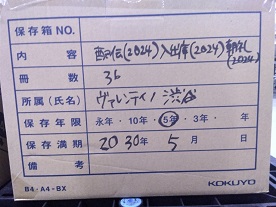 保存箱NO.
内容 配伝(2024) 入出庫(2024) 朝礼(2024)
冊数 36
所属(氏名) ヴァレンティノ 渋谷
保存年限 永年・10年・5年・3年・ 年
保存満期 2030年 5月 日
備考
B4・A4-BX KOKUYO